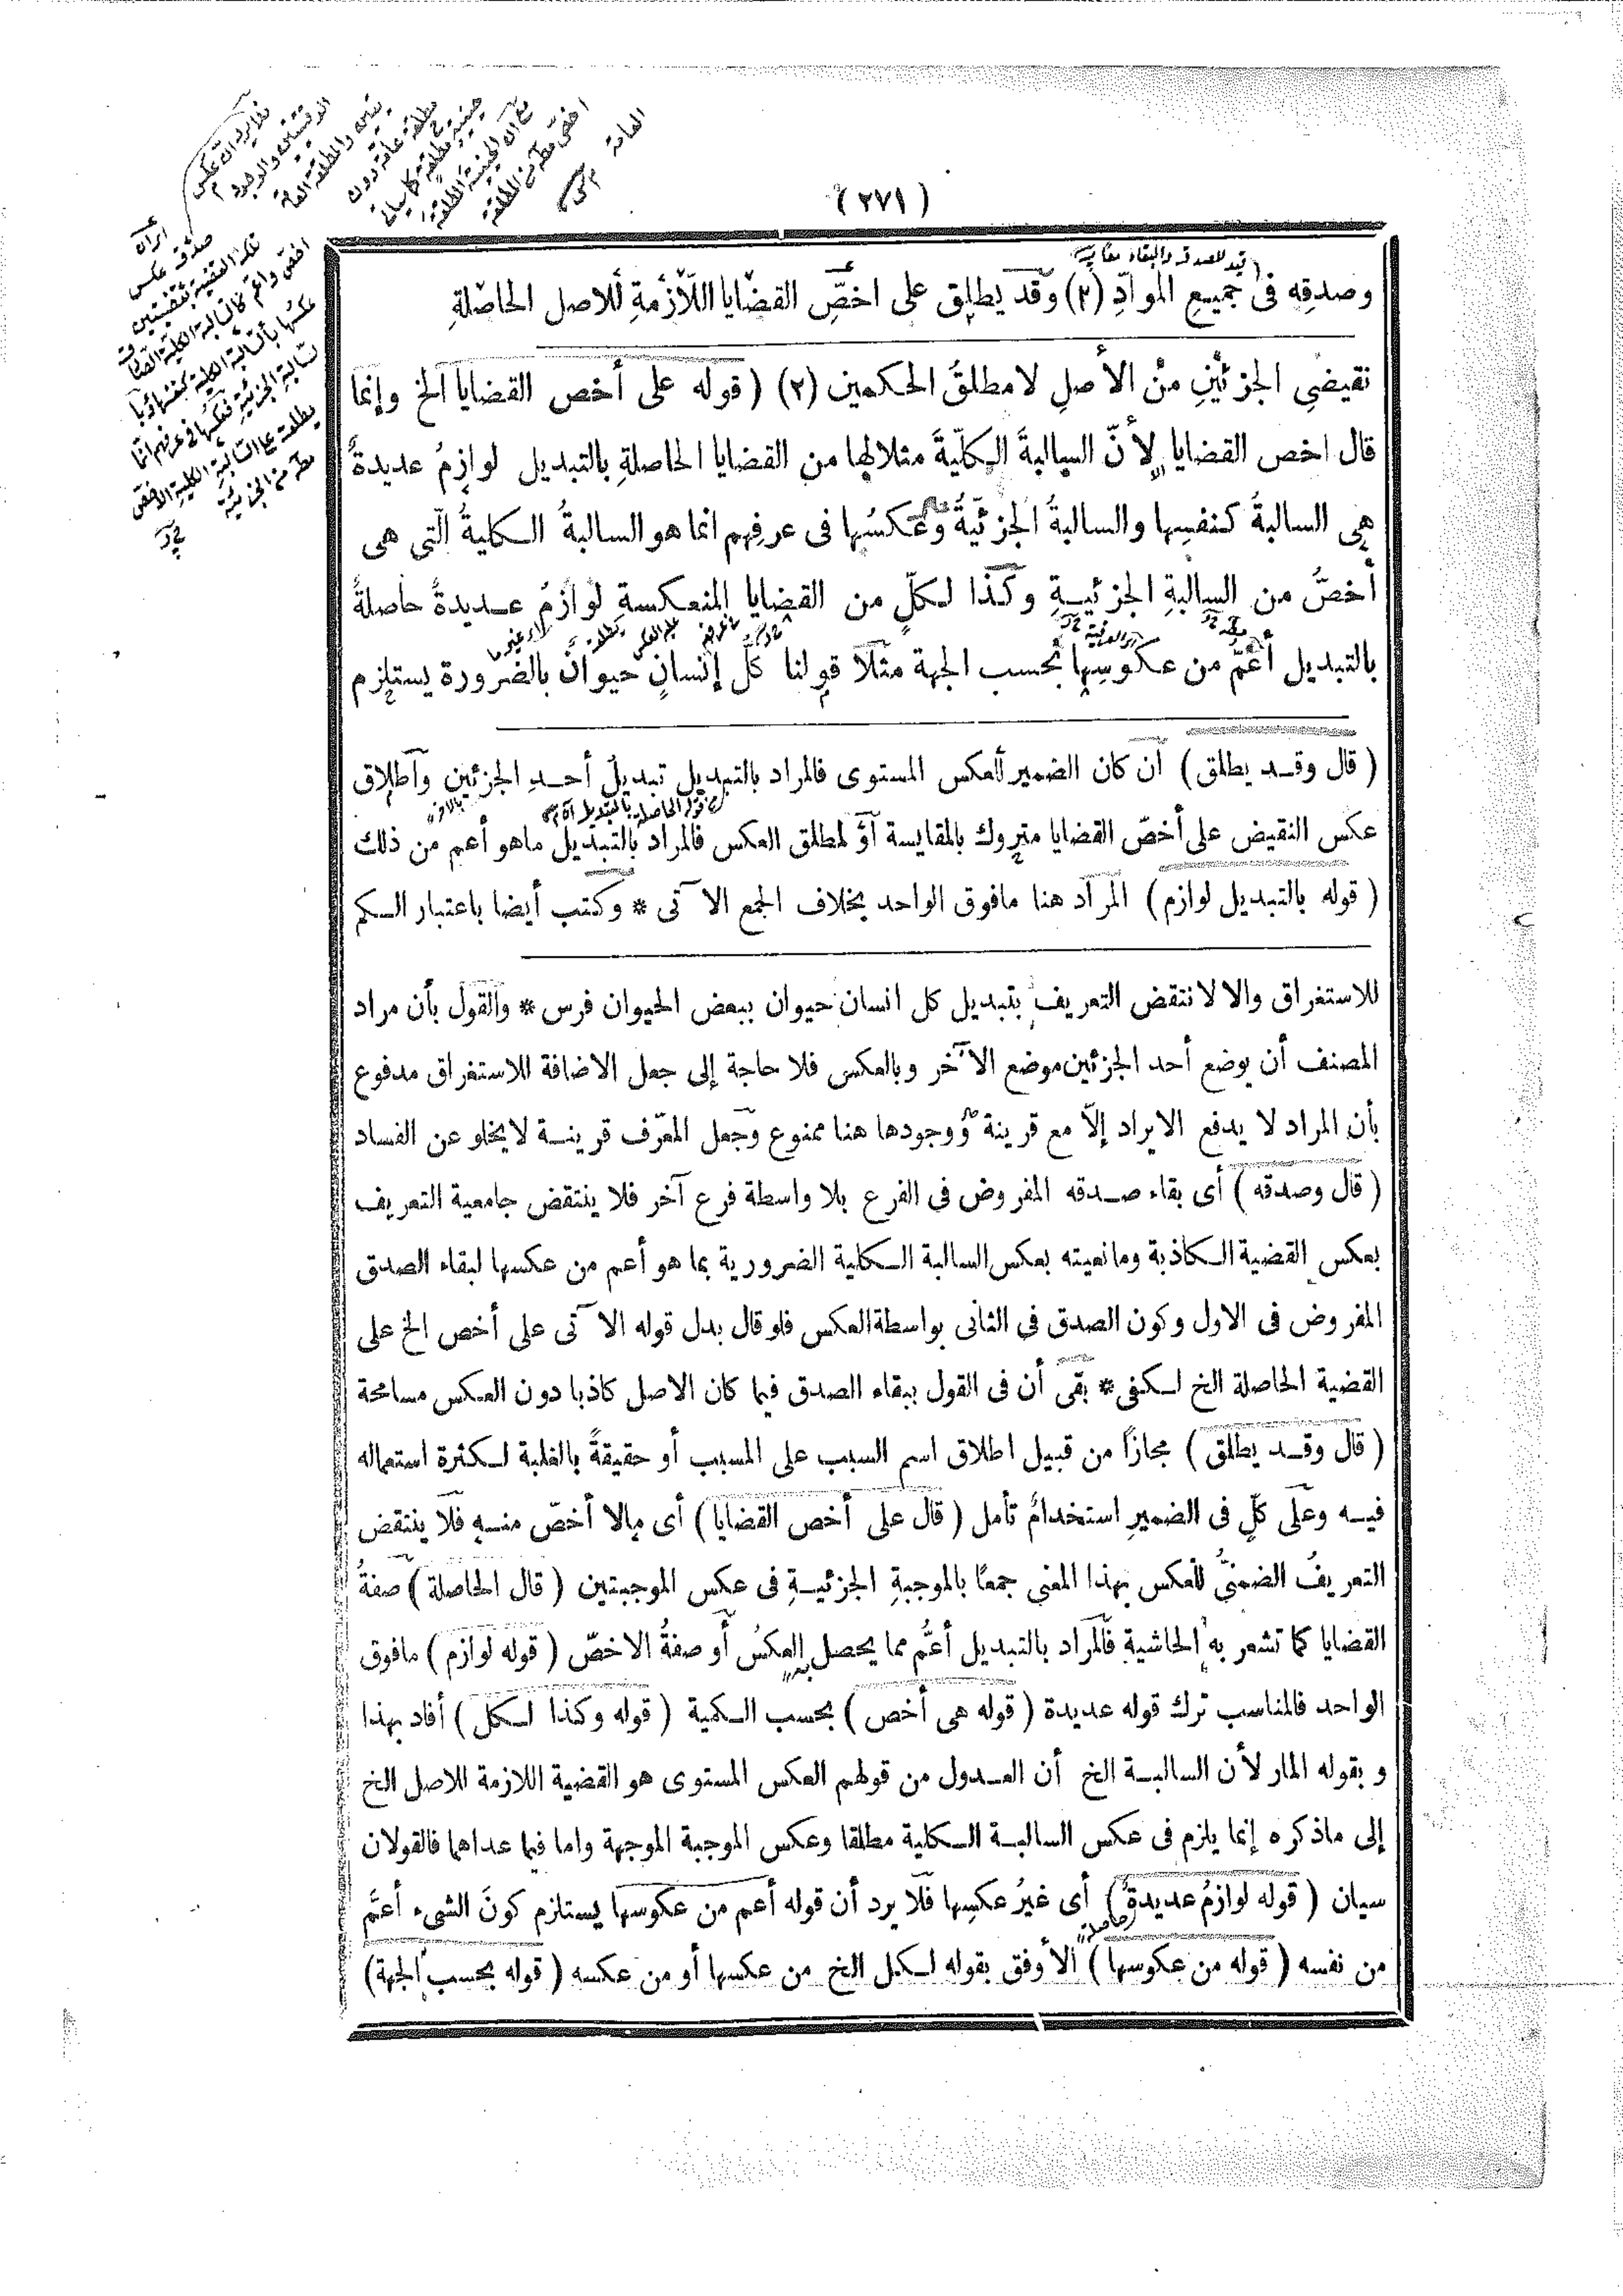 (٢٧١)
وصدقِه فى جميعِ الموادِّ (٢) وقد يطلق على اخصِّ القضايا اللّازمةِ للاصل الحاصلةِ
نقيضىِ الجزئينِ منْ الأصلِ لامطلقُ الحكمين (٢) (قوله على أخص القضايا الخ وإنما
قال اخص القضايا لأنّ السالبةَ الكلّيةَ مثلا لها من القضايا الحاصلةِ بالتبديل لوازمُ عديدةٌ
هى السالبةُ كنفسِها والسالبةُ الجزئيّةُ وعكسُها فى عرفِهم انما هو السالبةُ الكليةُ الّتى هى
أخصُّ من السالبةِ الجزئيةِ وكذا لكلّ من القضايا المنعكسةِ لوازمُ عديدةٌ حاصلةٌ
بالتبديل أعمّ من عكوسِها بحسب الجهة مثلا قولنا كلُّ إنسانٍ حيوانٌ بالضرورة يستلزم
(قال وقد يطلق) ان كان الضمير للعكس المستوى فالمراد بالتبديل تبديلُ أحدِ الجزئين واطلاق
عكس النقيض على أخصّ القضايا متروك بالمقايسة أو لمطلق العكس فالمراد بالتبديل ماهو أعم من ذلك
(قوله بالتبديل لوازم) المراد هنا مافوق الواحد بخلاف الجمع الآتى * وكتب أيضا باعتبار الكم
للاستغراق والا لانتقض التعريف بتبديل كل انسان حيوان ببعض الحيوان فرس * والقول بأن مراد
المصنف أن يوضع أحد الجزئين موضع الآخر وبالعكس فلا حاجة إلى جعل الاضافة للاستغراق مدفوع
بأن المراد لا يدفع الايراد إلّا مع قرينة ووجودها هنا ممنوع وجعل المعرّف قرينة لايخلو عن الفساد
(قال وصدقه) أى بقاء صدقه المفروض فى الفرع بلا واسطة فرع آخر فلا ينتقض جامعية التعريف
بعكس القضية الكاذبة ومانعيته بعكس السالبة الكلية الضرورية بما هو أعم من عكسها لبقاء الصدق
المفروض فى الاول وكون الصدق فى الثانى بواسطة العكس فلو قال بدل قوله الآتى على أخص الخ على
القضية الحاصلة الخ لكفى * بقى أن فى القول ببقاء الصدق فيما كان الاصل كاذبا دون العكس مسامحة
(قال وقد يطلق) مجازًا من قبيل اطلاق اسم السبب على المسبب أو حقيقةً بالغلبة لكثرة استعماله
فيه وعلى كلٍّ فى الضميرِ استخدامٌ تأمل (قال على أخص القضايا) أى مالا أخصّ منه فلا ينتقض
التعريفُ الضمنىُّ للعكس بهذا المعنى جمعًا بالموجبةِ الجزئيةِ فى عكس الموجبتين (قال الحاصلة) صفةُ
القضايا كما تشعر به الحاشية فالمراد بالتبديل أعمُّ مما يحصل العكسُ أو صفةُ الاخصّ (قوله لوازم) مافوق
الواحد فالمناسب ترك قوله عديدة (قوله هى أخص) بحسب الكمية (قوله وكذا لكل) أفاد بهذا
وبقوله المار لأن السالبة الخ أن العدول من قولهم العكس المستوى هو القضية اللازمة للاصل الخ
إلى ماذكره إنما يلزم فى عكس السالبة الكلية مطلقا وعكس الموجبة الموجهة واما فيما عداهما فالقولان
سيان (قوله لوازمُ عديدةٌ) أى غيرُ عكسِها فلا يرد أن قوله أعم من عكوسها يستلزم كونَ الشىء أعمَّ
من نفسه (قوله من عكوسها) الأوفق بقوله لكل الخ من عكسها أو من عكسه (قوله بحسب الجهة)